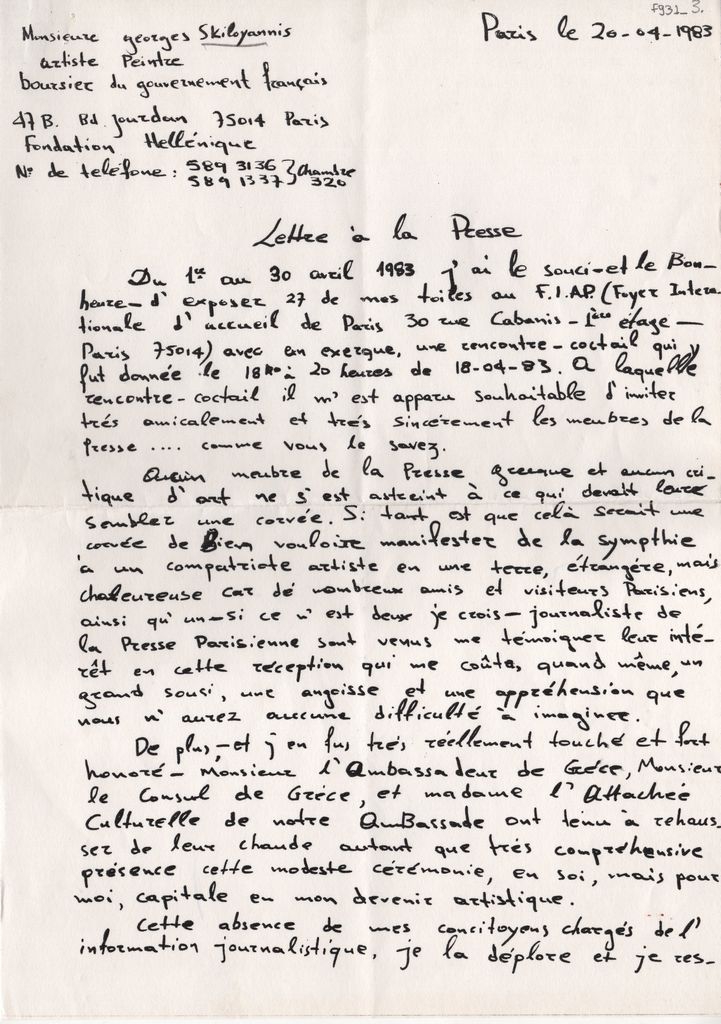 F931_3.
Monsieure georges Skiloyannis
Paris le 20-04-1983
artiste Peintre
boursier du gouvernement français
47 B. Bd. jourdan 75014 Paris
Fondation Hellénique
No de teléfone : 589 3136 } chambre
589 1337 } 320
Lettre à la Presse
Du 1er au 30 avril 1983 j'ai le souci-et le Bon-
heure- d'exposer 27 de mes toiles au F.I.A.P. (Foyer Interna
tionale d'accueil de Paris 30 rue Cabanis - 1ère étage -
Paris 75014) avec en exergue, une rencontre-coctail qui
fut donnée le 18h à 20 heures de 18-04-83. A laquelle
rencontre-coctail il m'est apparu souhaitable d'inviter
trés amicalement et trés sincérement les meubres de la
Presse .... comme vous le savez.
Aucun meubre de la Presse grecque et aucun cri-
tique d'art ne s'est astreint à ce qui devait leure
sembler une corvée. Si tant est que celà serait une
corvée de Bien vouloire manifester de la sympthie
à un compatriote artiste en une terre, étrangére, mais
chaleureuse car de nombreux amis et visiteurs Parisiens,
ainsi qu'un-si ce n'est deux je crois-journaliste de
la Presse Parisienne sont venus me témoigner leur inté-
rêt en cette réception qui me coûta, quand même, un
grand sousi, une angoisse et une appréhension que
vous n'aurez auccune difficulté à imaginer.
De plus,-et j'en fus trés réellement touché et fort
honoré- Monsieur l'Ambassadeur de Gréce, Monsieur
le Consul de Gréce, et madame l'Attachée
Culturelle de notre AmBassade ont tenu à rehaus-
ser de leur chaude autant que trés compréhensive
présence cette modeste cérémonie, en soi, mais pour
moi, capitale en mon devenir artistique.
Cette absence de mes concitoyens chargés de l'
information journalistique, je la déplore et je res-